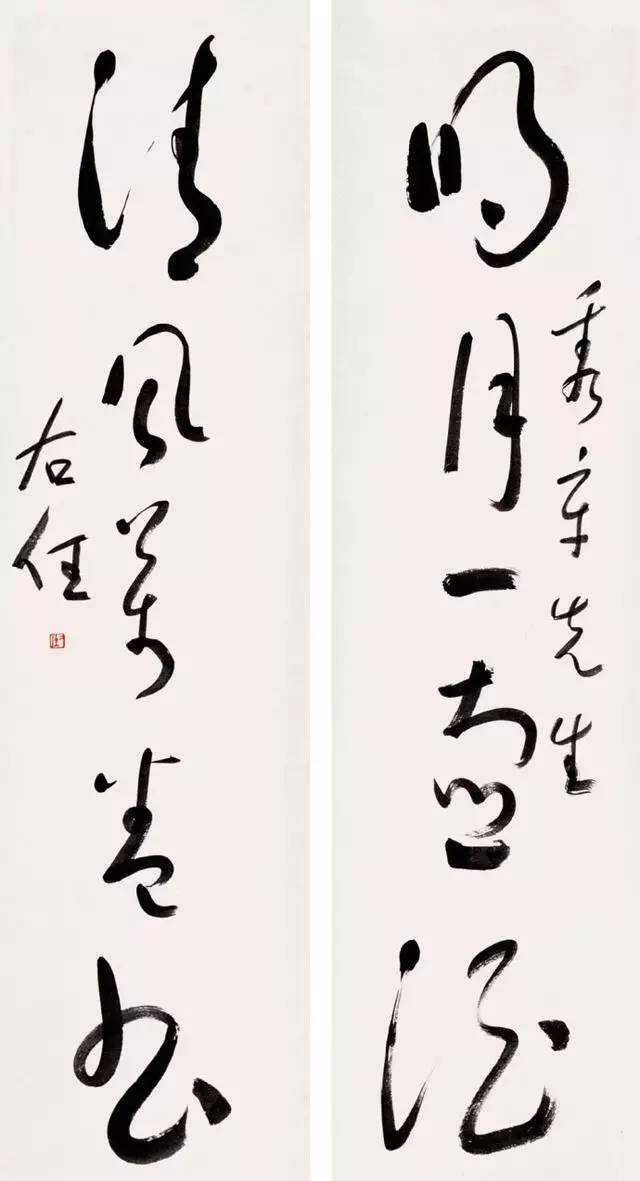 章先生
明月一壺酒
清風萬卷書
右任